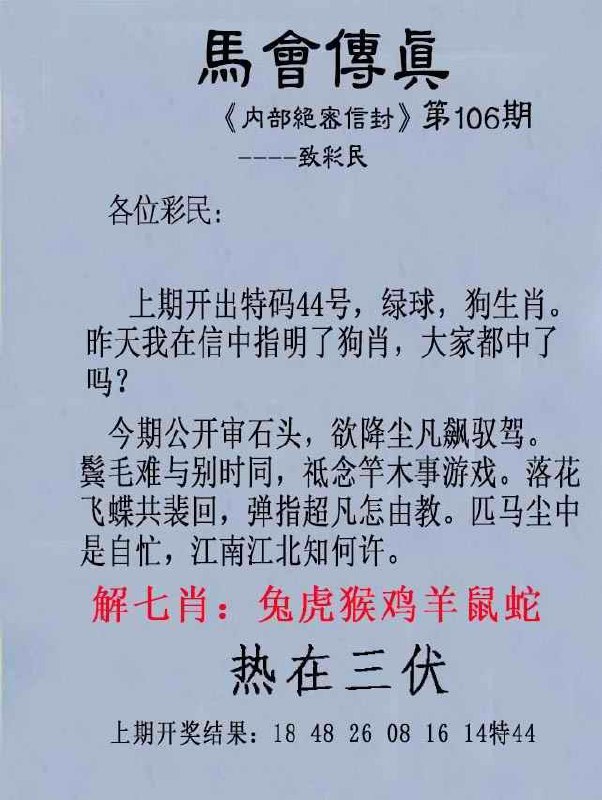 馬會傳眞
《内部絕密信封》第106期
----致彩民
各位彩民:
上期开出特码44号，绿球，狗生肖。
昨天我在信中指明了狗肖，大家都中了
吗？
今期公开审石头，欲降尘凡飙驭驾。
鬓毛难与别时同，祗念竿木事游戏。落花
飞蝶共裴回，弹指超凡怎由教。匹马尘中
是自忙，江南江北知何许。
解七肖：兔虎猴鸡羊鼠蛇
热在三伏
上期开奖结果：18 48 26 08 16 14特44